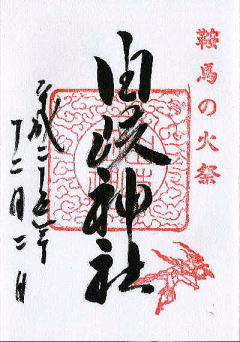 鞍馬の火祭
由岐神社
平成二十五年
十二月二日